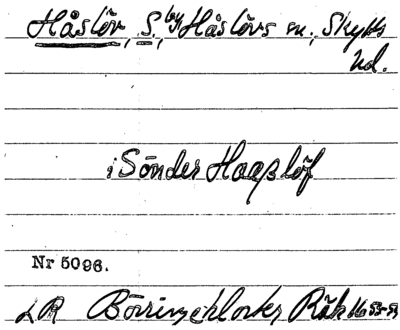 Håslöv, S., by, Håslövs sn., Skytts
hd.
i Sönder Haaßlöf
Nr 5096.
LR Börringeklosters Räk 1653-